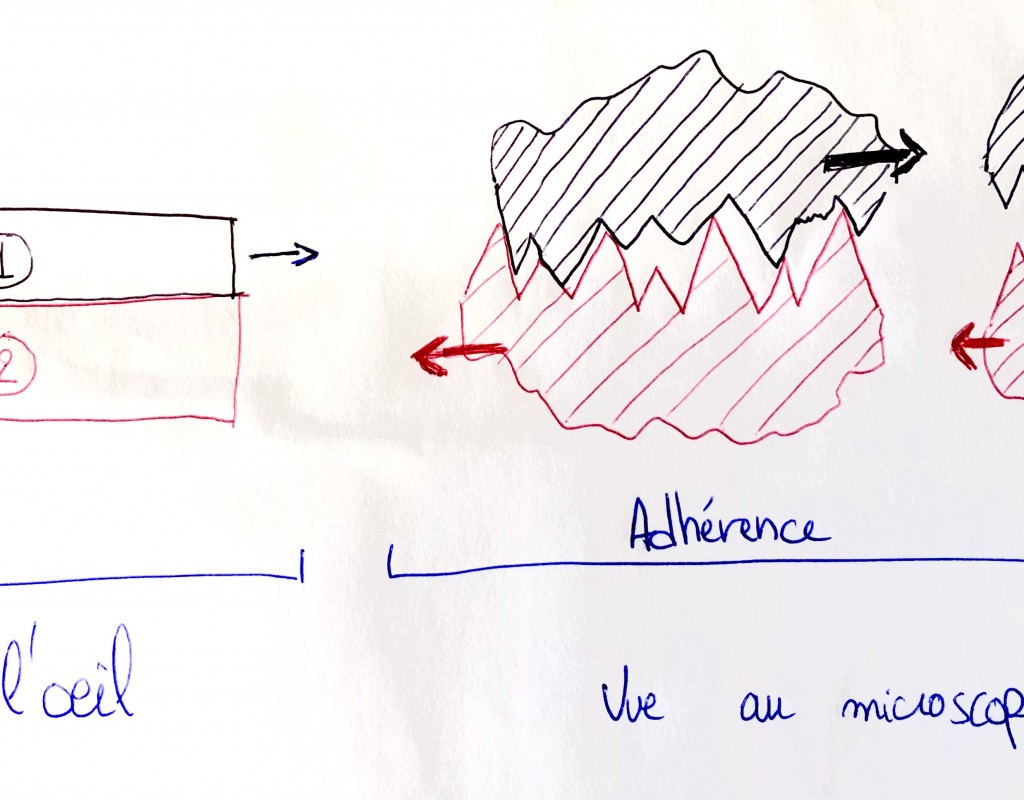 1
2
Adhérence
l'oeil
Vue au microscop